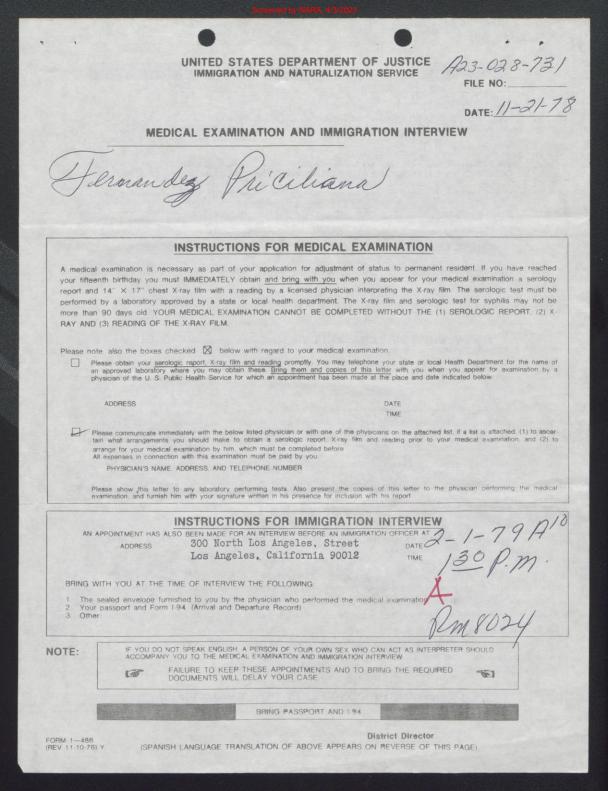 Screened by NARA, 4/3/2023
UNITED STATES DEPARTMENT OF JUSTICE
IMMIGRATION AND NATURALIZATION SERVICE
A23-028-731
FILE NO:
DATE: 11-21-78
MEDICAL EXAMINATION AND IMMIGRATION INTERVIEW
Fernandez Priciliana
INSTRUCTIONS FOR MEDICAL EXAMINATION
A medical examination is necessary as part of your application for adjustment of status to permanent resident. If you have reached
your fifteenth birthday you must IMMEDIATELY obtain and bring with you when you appear for your medical examination a serology
report and 14" X 17" chest X-ray film with a reading by a licensed physician interpreting the X-ray film. The serologic test must be
performed by a laboratory approved by a state or local health department. The X-ray film and serologic test for syphilis may not be
more than 90 days old. YOUR MEDICAL EXAMINATION CANNOT BE COMPLETED WITHOUT THE (1) SEROLOGIC REPORT, (2) X-
RAY AND (3) READING OF THE X-RAY FILM.
Please note also the boxes checked ☒ below with regard to your medical examination.
Please obtain your serologic report, X-ray film and reading promptly. You may telephone your state or local Health Department for the name of
an approved laboratory where you may obtain these. Bring them and copies of this letter with you when you appear for examination by a
physician of the U. S. Public Health Service for which an appointment has been made at the place and date indicated below.
ADDRESS DATE
TIME
Please communicate immediately with the below listed physician or with one of the physicians on the attached list, if a list is attached, (1) to ascer-
tain what arrangements you should make to obtain a serologic report, X-ray film and reading prior to your medical examination, and (2) to
arrange for your medical examination by him, which must be completed before
All expenses in connection with this examination must be paid by you.
PHYSICIAN'S NAME, ADDRESS, AND TELEPHONE NUMBER
Please show this letter to any laboratory performing tests. Also present the copies of this letter to the physician performing the medical
examination, and furnish him with your signature written in his presence for inclusion with his report.
INSTRUCTIONS FOR IMMIGRATION INTERVIEW
AN APPOINTMENT HAS ALSO BEEN MADE FOR AN INTERVIEW BEFORE AN IMMIGRATION OFFICER AT
ADDRESS 300 North Los Angeles, Street DATE 2-1-79 A10
Los Angeles, California 90012 TIME 1 30 P.m.
BRING WITH YOU AT THE TIME OF INTERVIEW THE FOLLOWING:
1 The sealed envelope furnished to you by the physician who performed the medical examination
A
2 Your passport and Form I-94 (Arrival and Departure Record)
3 Other:
Rm 8024
NOTE:
IF YOU DO NOT SPEAK ENGLISH, A PERSON OF YOUR OWN SEX WHO CAN ACT AS INTERPRETER SHOULD
ACCOMPANY YOU TO THE MEDICAL EXAMINATION AND IMMIGRATION INTERVIEW
FAILURE TO KEEP THESE APPOINTMENTS AND TO BRING THE REQUIRED
DOCUMENTS WILL DELAY YOUR CASE
BRING PASSPORT AND I-94
District Director
FORM I-486
(REV 11-10-76) Y
(SPANISH LANGUAGE TRANSLATION OF ABOVE APPEARS ON REVERSE OF THIS PAGE)